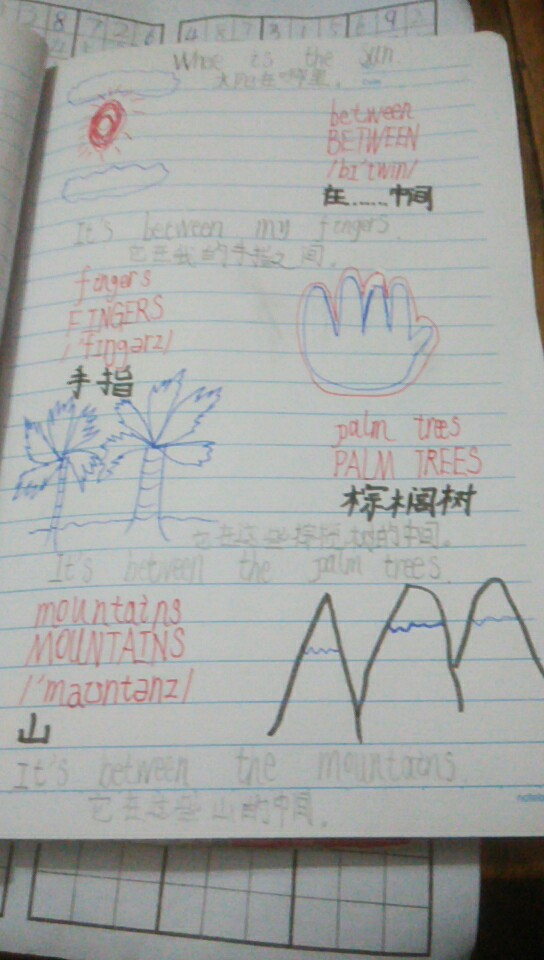 Whoe is the Sun.
太阳在哪里。
between
BETWEEN
/bɪ'twin/
在……中间
It's between my fingers.
它在我的手指之间.
fingers
FINGERS
/'fɪŋgərz/
手指
palm trees
PALM TREES
棕榈树
它在这些棕榈树的中间。
It's between the palm trees.
mountains
MOUNTAINS
/'maʊntənz/
山
It's between the mountains.
它在这些山的中间.